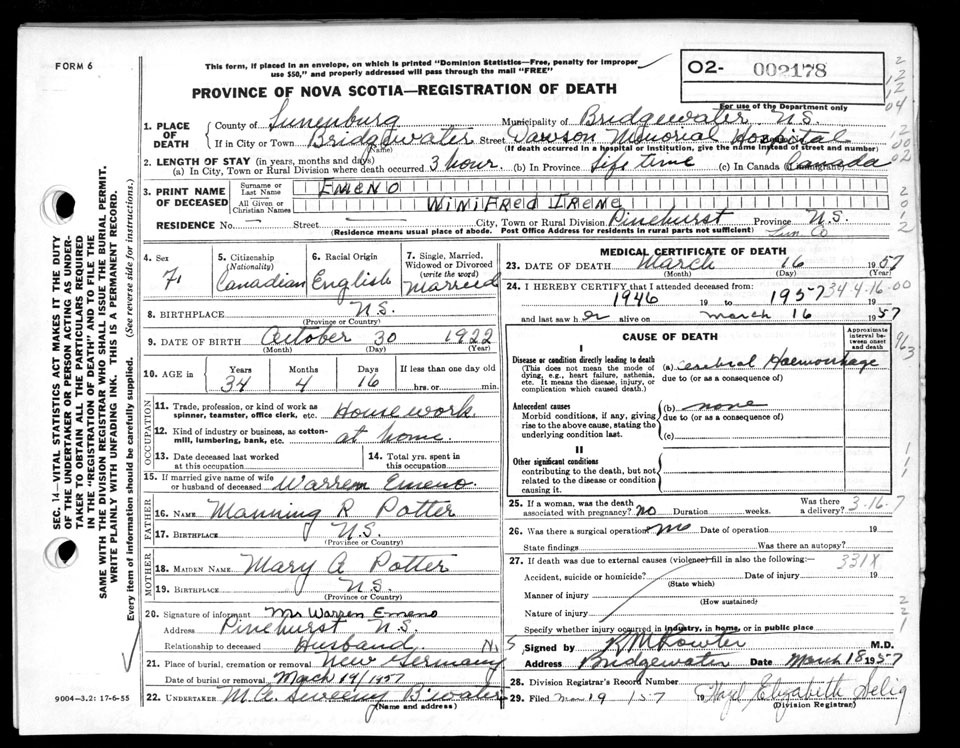 FORM 6
This form, if placed in an envelope, on which is printed "Dominion Statistics—Free, penalty for improper
use $50," and properly addressed will pass through the mail "FREE"
O2- 002178
For use of the Department only
PROVINCE OF NOVA SCOTIA—REGISTRATION OF DEATH
1. PLACE OF DEATH
County of Lunenburg Municipality of Bridgewater N.S.
If in City or Town Bridgewater Street Dawson Memorial Hospital
(Name) (If death occurred in a hospital or institution, give the name instead of street and number)
2. LENGTH OF STAY (in years, months and days)
(a) In City, Town or Rural Division where death occurred 3 hour. (b) In Province Life time (c) In Canada (if immigrant) Canada
3. PRINT NAME OF DECEASED
Surname or Last Name EMENO
All Given or Christian Names WINIFRED IRENE
RESIDENCE No. — Street — City, Town or Rural Division Pinehurst Province N.S.
(Residence means usual place of abode. Post Office Address for residents in rural parts not sufficient) Lun Co
4. Sex F.
5. Citizenship (Nationality) Canadian
6. Racial Origin English
7. Single, Married, Widowed or Divorced (write the word) Married
8. BIRTHPLACE N.S.
(Province or Country)
9. DATE OF BIRTH October 30 1922
(Month) (Day) (Year)
10. AGE in Years 34 Months 4 Days 16 If less than one day old hrs. or min.
OCCUPATION
11. Trade, profession, or kind of work as spinner, teamster, office clerk, etc. House work.
12. Kind of industry or business, as cotton-mill, lumbering, bank, etc. at home.
13. Date deceased last worked at this occupation
14. Total yrs. spent in this occupation
15. If married give name of wife or husband of deceased Warren Emeno.
FATHER
16. NAME Manning R Potter
17. BIRTHPLACE N.S.
(Province or Country)
MOTHER
18. MAIDEN NAME Mary A Potter
19. BIRTHPLACE N.S.
(Province or Country)
20. Signature of informant Mr Warren Emeno
Address Pinehurst N.S.
Relationship to deceased Husband
21. Place of burial, cremation or removal New Germany N.S
Date of burial or removal March 19/1957
22. UNDERTAKER M.C. Sweeny B'water
(Name and address)
9004—3.2: 17-6-55
MEDICAL CERTIFICATE OF DEATH
23. DATE OF DEATH March 16 1957
(Month) (Day) (Year)
24. I HEREBY CERTIFY that I attended deceased from:
1946 19 to 1957 34 4-16-00
and last saw her alive on March 16 1957
CAUSE OF DEATH
Approximate interval between onset and death
I
Disease or condition directly leading to death
(This does not mean the mode of dying, e.g., heart failure, asthenia, etc. It means the disease, injury, or complication which caused death.)
(a) Cerebral Haemorrhage
due to (or as a consequence of)
Antecedent causes
Morbid conditions, if any, giving rise to the above cause, stating the underlying condition last.
(b) none
due to (or as a consequence of)
(c)
II
Other significant conditions
contributing to the death, but not related to the disease or condition causing it.
25. If a woman, was the death associated with pregnancy? no Duration weeks. Was there a delivery? 3-16-7
26. Was there a surgical operation no Date of operation 19
State findings Was there an autopsy?
27. If death was due to external causes (violence) fill in also the following: 331X
Accident, suicide or homicide? Date of injury 19
(State which)
Manner of injury
(How sustained)
Nature of injury
Specify whether injury occurred in industry, in home, or in public place
Signed by M.D.
Address Bridgewater Date March 18 1957
28. Division Registrar's Record Number 5
29. Filed Mar 19 1957 Hazel Elizabeth Selig
(Division Registrar)
SEC. 14—VITAL STATISTICS ACT MAKES IT THE DUTY
OF THE UNDERTAKER OR PERSON ACTING AS UNDER-
TAKER TO OBTAIN ALL THE PARTICULARS REQUIRED
IN THE "REGISTRATION OF DEATH" AND TO FILE THE
SAME WITH THE DIVISION REGISTRAR WHO SHALL ISSUE THE BURIAL PERMIT.
WRITE PLAINLY WITH UNFADING INK. THIS IS A PERMANENT RECORD.
Every item of information should be carefully supplied. (See reverse side for instructions.)